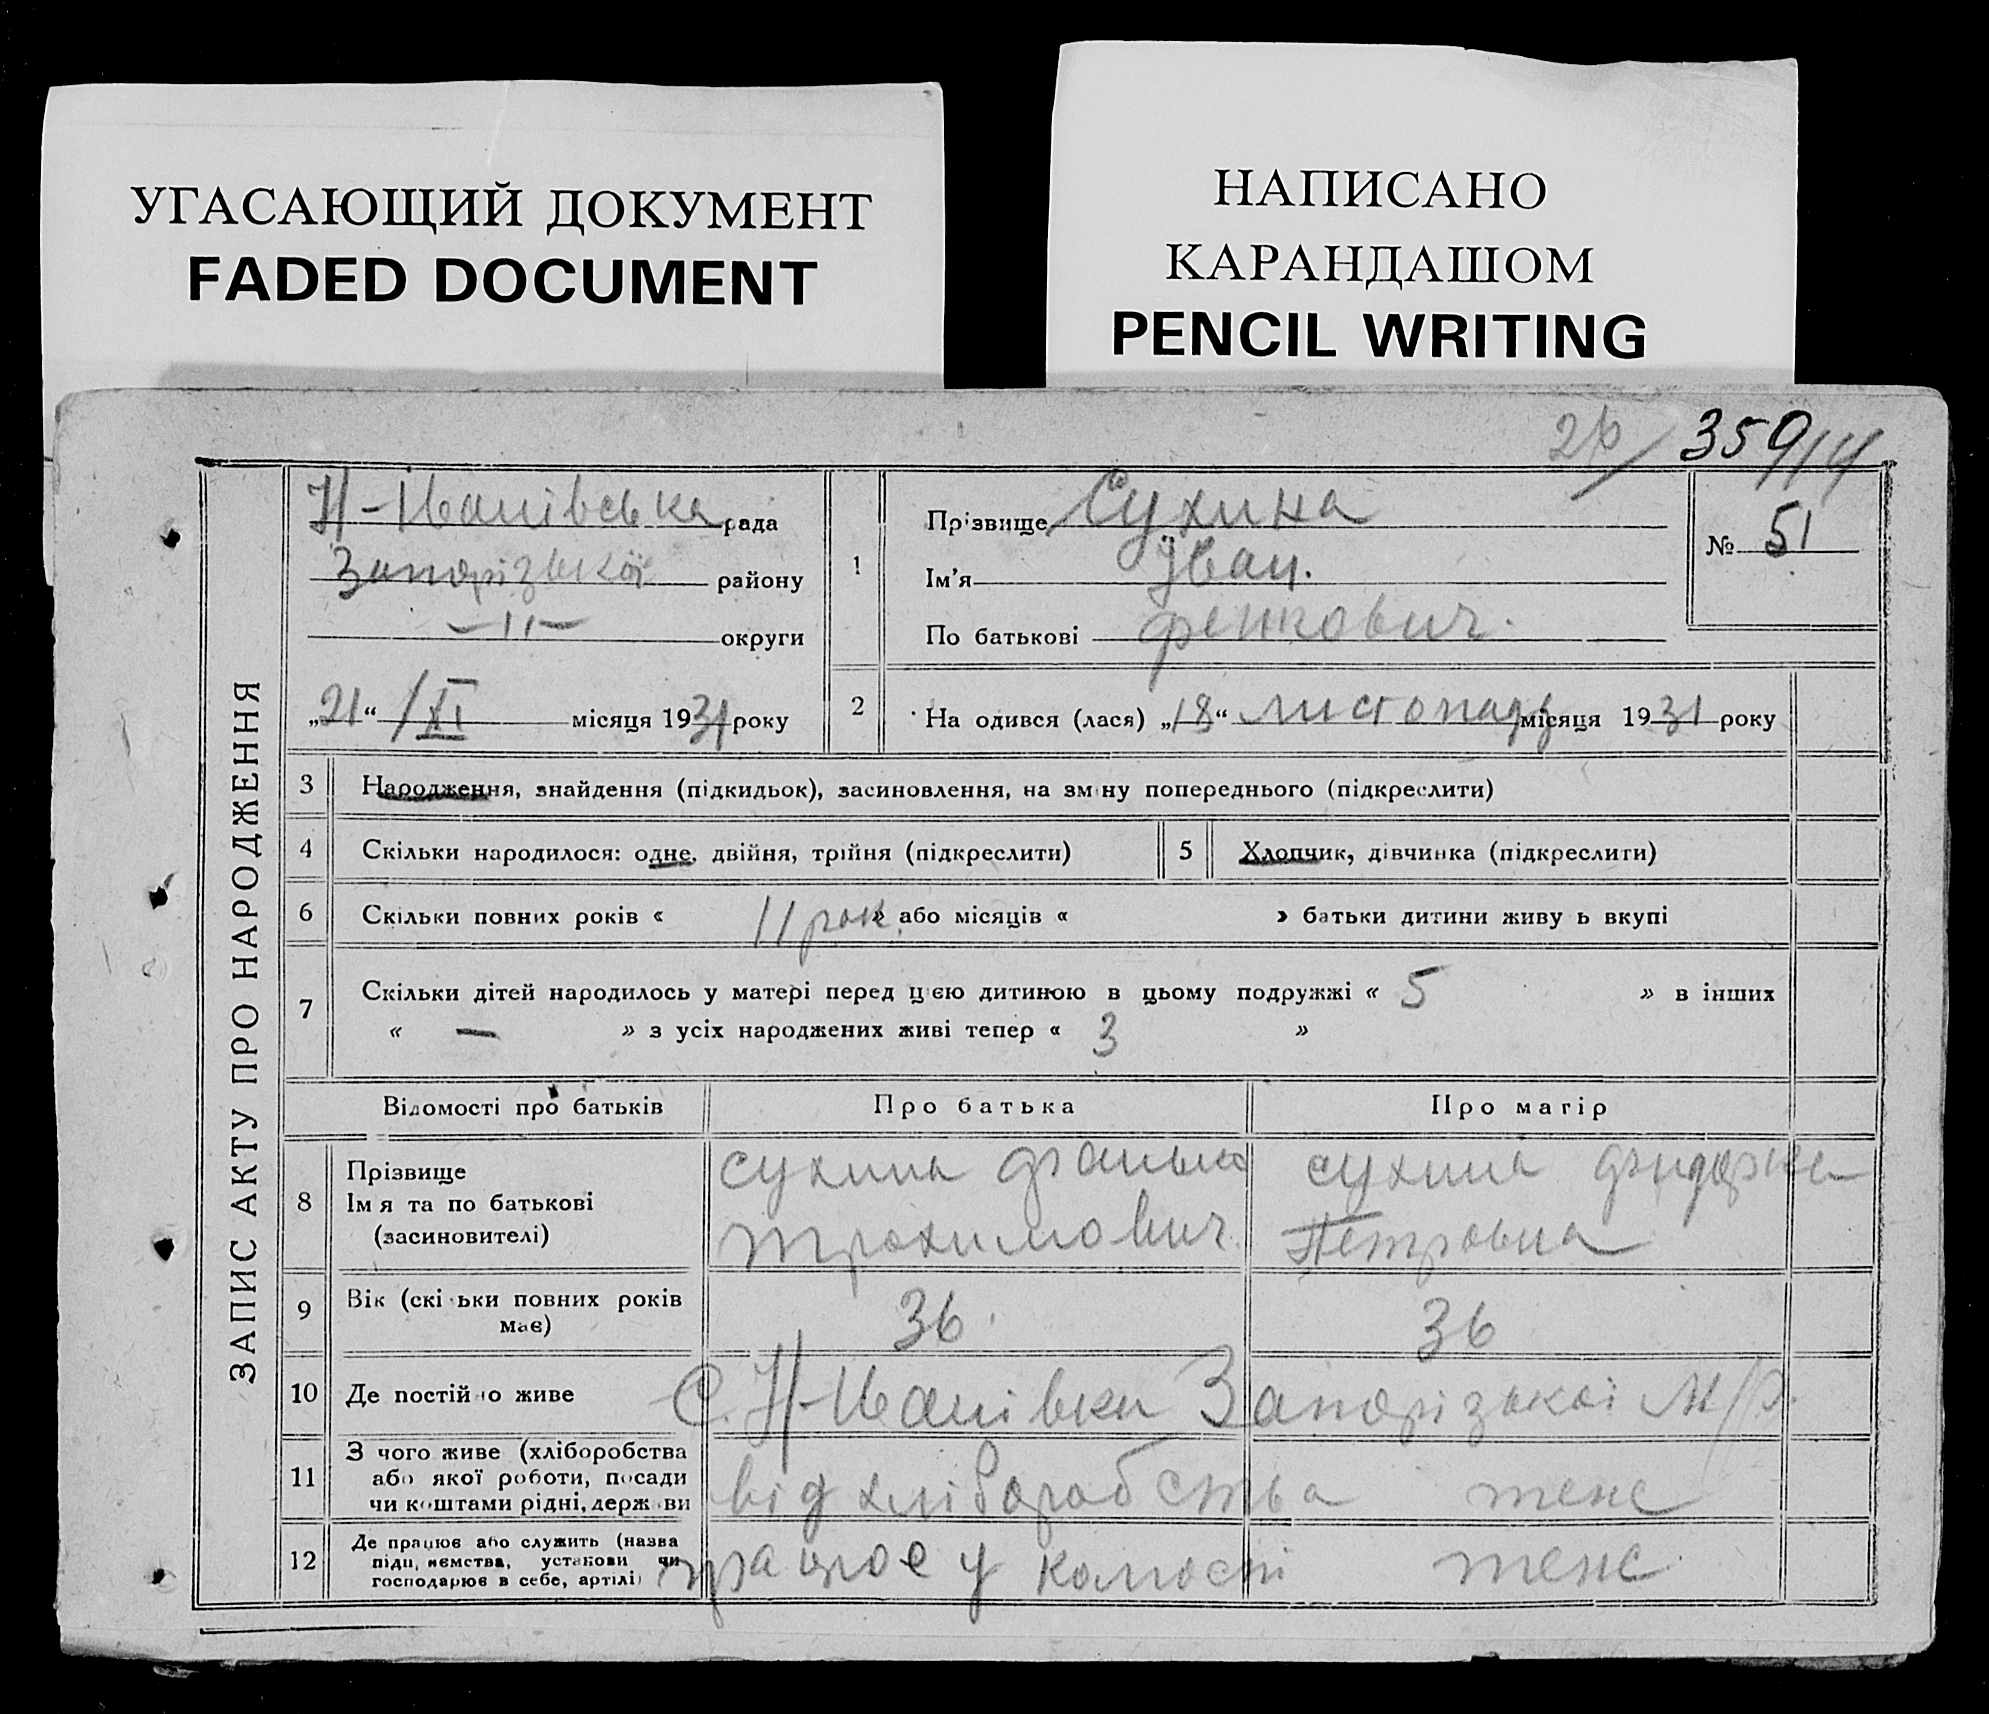 УГАСАЮЩИЙ ДОКУМЕНТ
FADED DOCUMENT
НАПИСАНО
КАРАНДАШОМ
PENCIL WRITING
359/14
ЗАПИС АКТУ ПРО НАРОДЖЕННЯ
Н-Іванівська рада
Запорізької району
—11— округи
„21“ /XI місяця 1931 року
1
Прізвище Сухина
Ім'я Іван.
По батькові Фенкович.
№ 51
2 Народився (лася) „18“ листопада місяця 1931 року
3 Народження, знайдення (підкидьок), засиновлення, на зміну попереднього (підкреслити)
4 Скільки народилося: одне, двійня, трійня (підкреслити) 5 Хлопчик, дівчинка (підкреслити)
6 Скільки повних років « 11 рок. » або місяців « » батьки дитини живуть вкупі
7 Скільки дітей народилось у матері перед цією дитиною в цьому подружжі « 5 » в інших
« — » з усіх народжених живі тепер « 3 »
Відомості про батьків Про батька Про матір
8 Прізвище
Ім я та по батькові
(засиновителі)
Сухина
Трохимович
Сухина
Петровна
9 Вік (скільки повних років
має)
36. 36
10 Де постійно живе С. Н-Іванівка Запорізької М/Р.
11 З чого живе (хліборобства
або якої роботи, посади
чи коштами рідні, держави
від хліборобства теж
12 Де працює або служить (назва
підприємства, установи чи
господарює в себе, артілі)
працює у теж